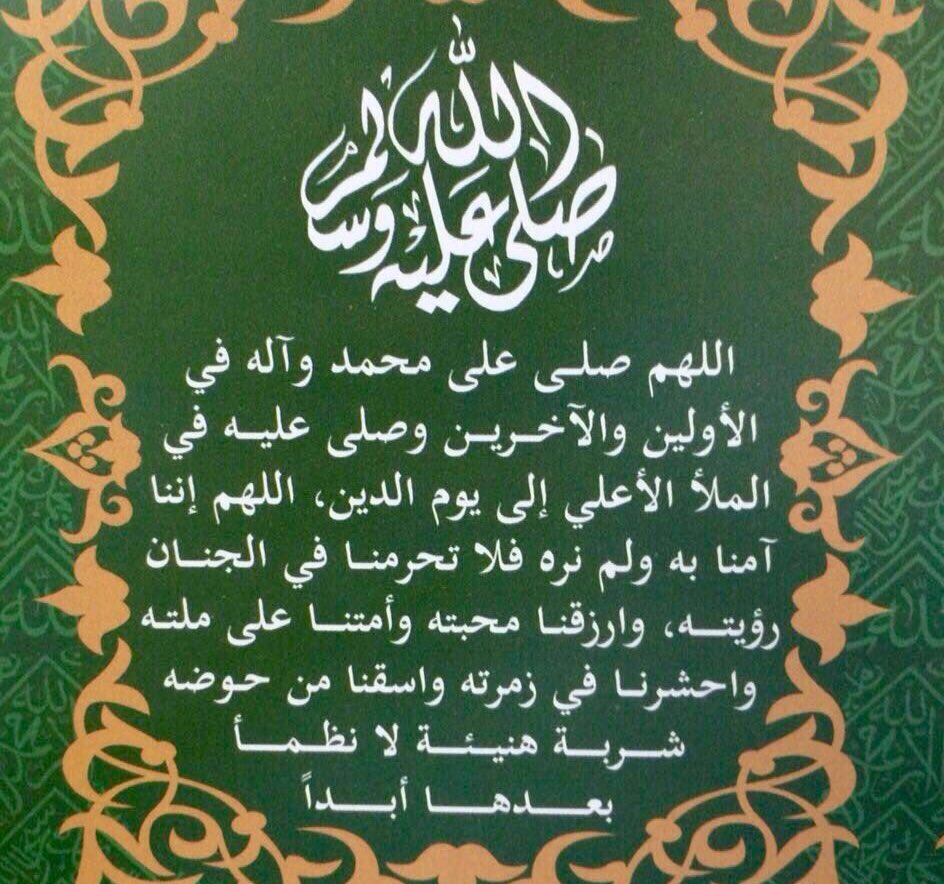 صلى الله عليه وسلم
اللهم صلى على محمد وآله في
الأولين والآخرين وصلى عليه في
الملأ الأعلي إلى يوم الدين، اللهم إننا
آمنا به ولم نره فلا تحرمنا في الجنان
رؤيته، وارزقنا محبته وأمتنا على ملته
واحشرنا في زمرته واسقنا من حوضه
شربة هنيئة لا نظمأ
بعدها أبداً